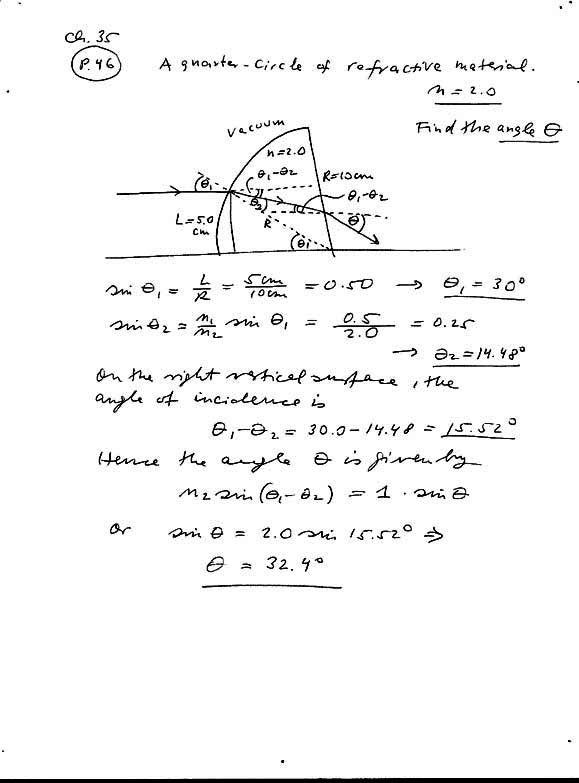 Ch. 35
P.46 A quarter-circle of refractive material.
n = 2.0
Find the angle θ
vacuum
n=2.0
θ₁ θ₁-θ₂ R=10cm
θ₂ θ₁-θ₂
L=5.0 cm R θ
θ₁
sin θ₁ = L/R = 5cm/10cm = 0.50 → θ₁ = 30°
sin θ₂ = n₁/n₂ sin θ₁ = 0.5/2.0 = 0.25
→ θ₂ = 14.48°
On the right vertical surface, the
angle of incidence is
θ₁-θ₂ = 30.0-14.48 = 15.52°
Hence the angle θ is given by
n₂ sin(θ₁-θ₂) = 1 · sin θ
or sin θ = 2.0 sin 15.52° ⇒
θ = 32.4°